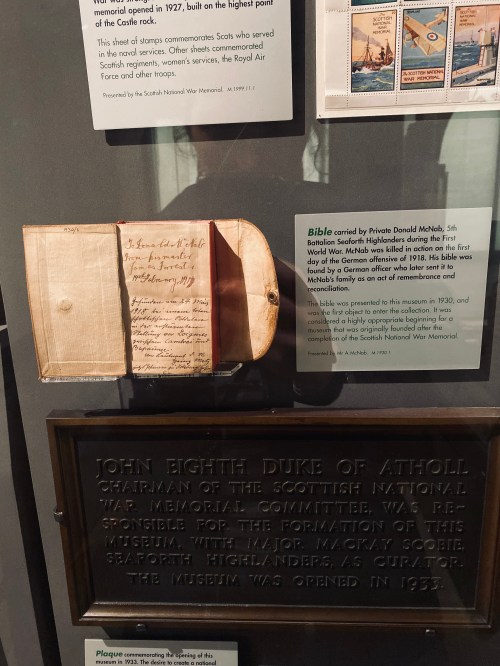 memorial opened in 1927, built on the highest point
of the Castle rock.
This sheet of stamps commemorates Scots who served
in the naval services. Other sheets commemorated
Scottish regiments, women's services, the Royal Air
Force and other troops.
Presented by the Scottish National War Memorial M.1999.11.1
SCOTTISH NATIONAL
WAR MEMORIAL
SCOTTISH NATIONAL
WAR MEMORIAL
To Donald McNab
from his master
James
February, 1917
Gefunden am 24. März
1918 bei einem
Bible carried by Private Donald McNab, 5th
Battalion Seaforth Highlanders during the First
World War. McNab was killed in action on the first
day of the German offensive of 1918. His bible was
found by a German officer who later sent it to
McNab's family as an act of remembrance and
reconciliation.
The bible was presented to this museum in 1930, and
was the first object to enter the collection. It was
considered a highly appropriate beginning for a
museum that was originally founded after the
completion of the Scottish National War Memorial.
Presented by Mr A McNab M.1930.1
JOHN EIGHTH DUKE OF ATHOLL
CHAIRMAN OF THE SCOTTISH NATIONAL
WAR MEMORIAL COMMITTEE, WAS RE-
SPONSIBLE FOR THE FORMATION OF THIS
MUSEUM, WITH MAJOR MACKAY SCOBIE,
SEAFORTH HIGHLANDERS, AS CURATOR.
THE MUSEUM WAS OPENED IN 1933.
Plaque commemorating the opening of this
museum in 1933. The desire to create a national